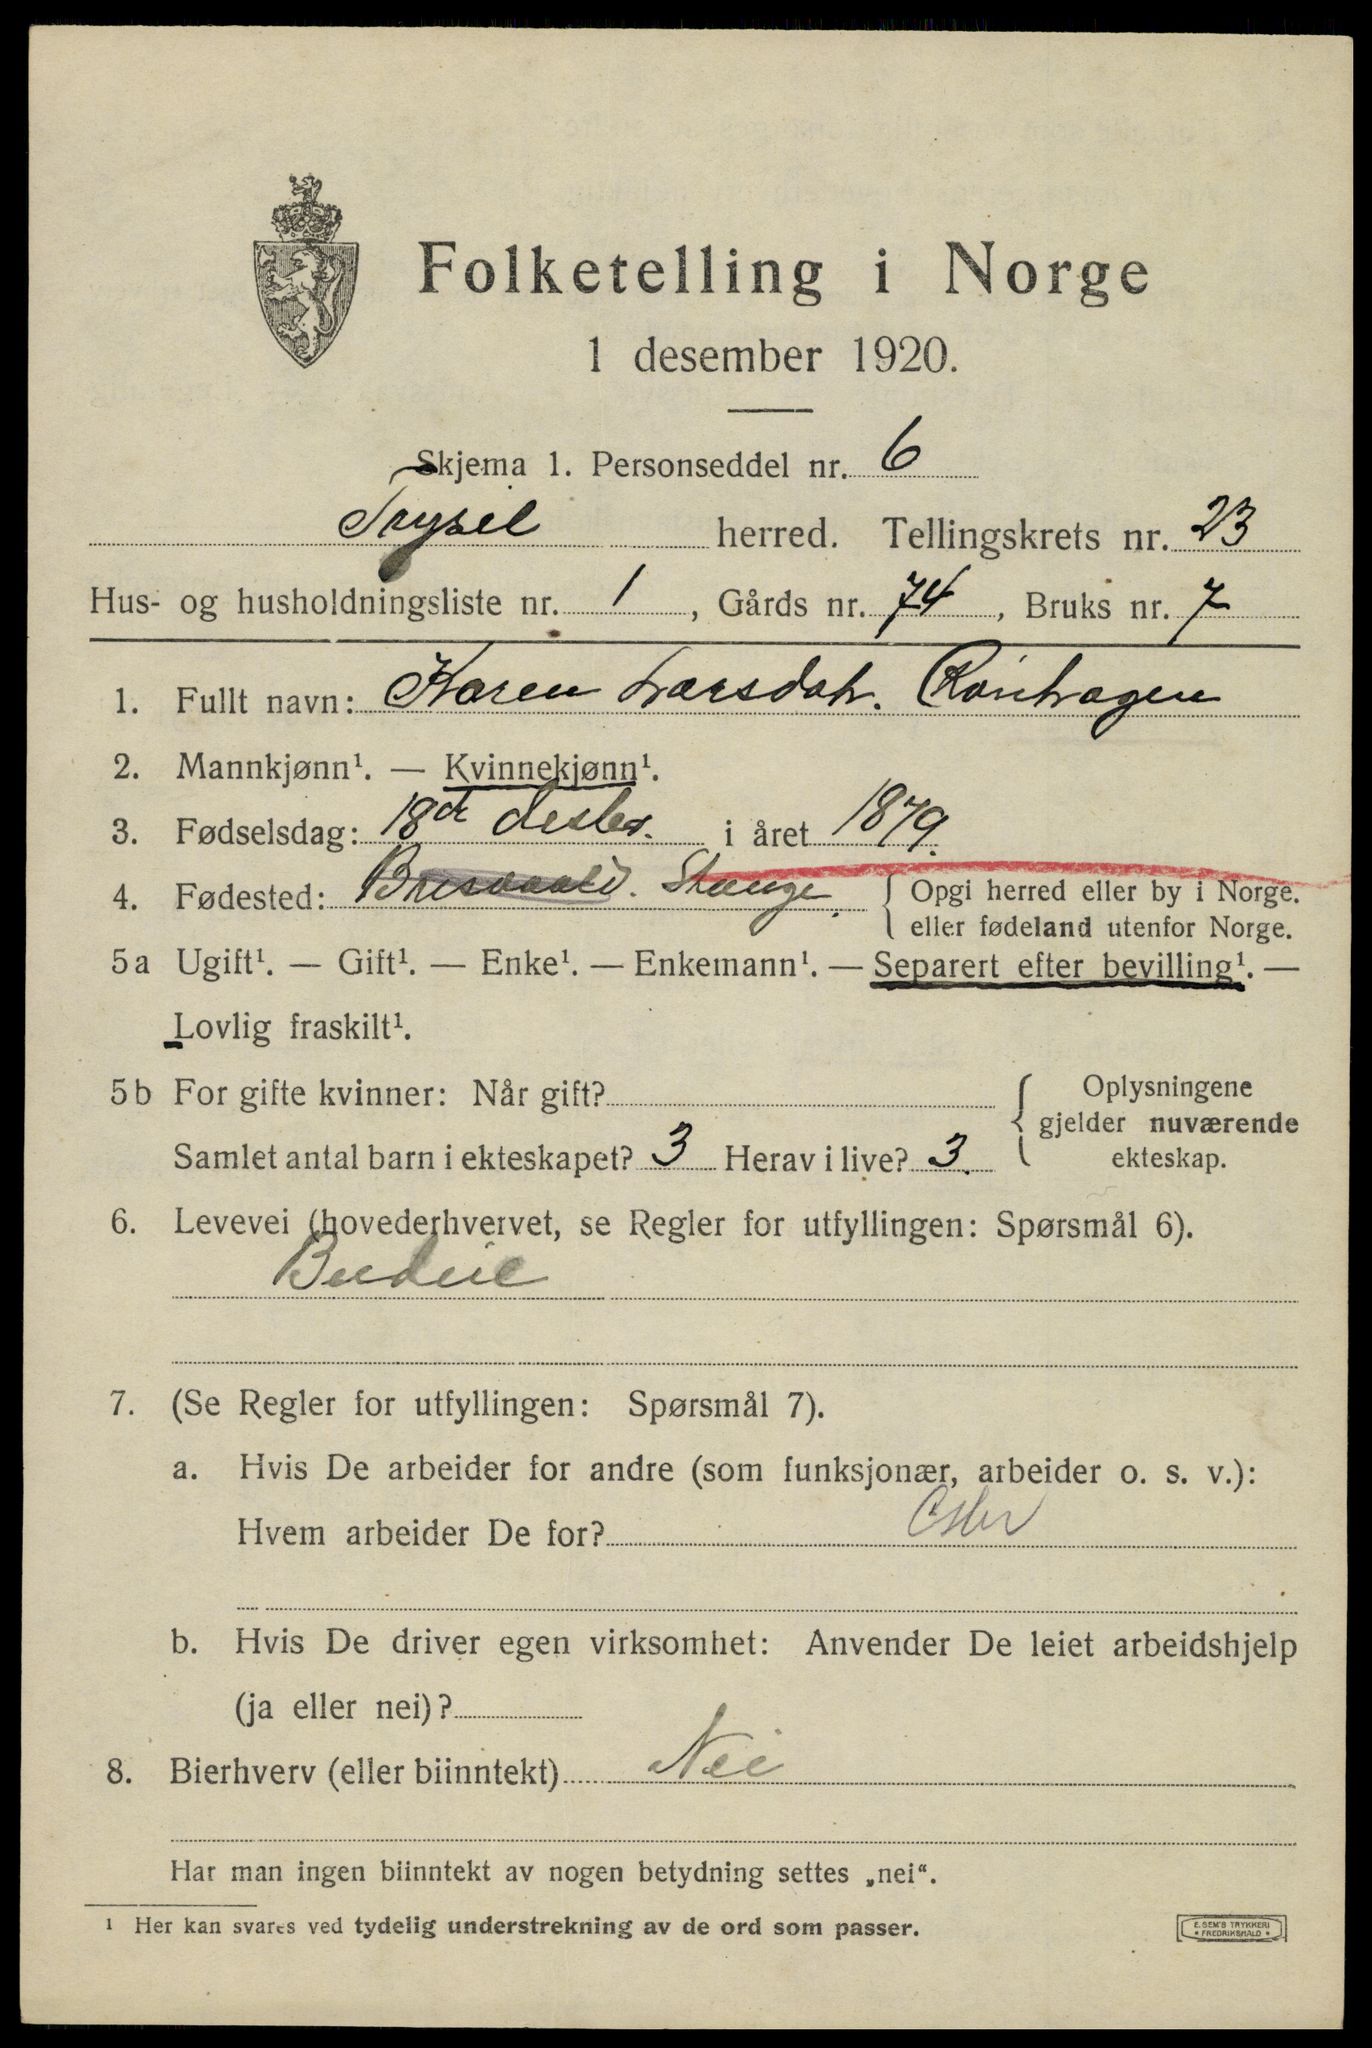 Folketelling i Norge
1 desember 1920.
Skjema 1. Personseddel nr. 6
Trysil herred. Tellingskrets nr. 23
Hus- og husholdningsliste nr. 1, Gårds nr. 74, Bruks nr. 7
1. Fullt navn: Karen Larsdatr. Rönhagen
2. Mannkjønn¹. — Kvinnekjønn¹.
3. Fødselsdag: 18de desbr. i året 1879.
4. Fødested: Stange. { Opgi herred eller by i Norge.
eller fødeland utenfor Norge.
5a Ugift¹. — Gift¹. — Enke¹. — Enkemann¹. — Separert efter bevilling¹. —
Lovlig fraskilt¹.
5b For gifte kvinner: Når gift? { Oplysningene
gjelder nuværende
Samlet antal barn i ekteskapet? 3 Herav i live? 3. ekteskap.
6. Levevei (hovederhvervet, se Regler for utfyllingen: Spørsmål 6).
Budeie
7. (Se Regler for utfyllingen: Spørsmål 7).
a. Hvis De arbeider for andre (som funksjonær, arbeider o. s. v.):
Hvem arbeider De for?
b. Hvis De driver egen virksomhet: Anvender De leiet arbeidshjelp
(ja eller nei)?
8. Bierhverv (eller biinntekt) Nei
Har man ingen biinntekt av nogen betydning settes „nei“.
¹ Her kan svares ved tydelig understrekning av de ord som passer.
E. SEM'S TRYKKERI
* FREDRIKSHALD *